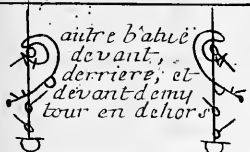 autre b'atuë
devant,
derriere, et
devant demy
tour en dehors